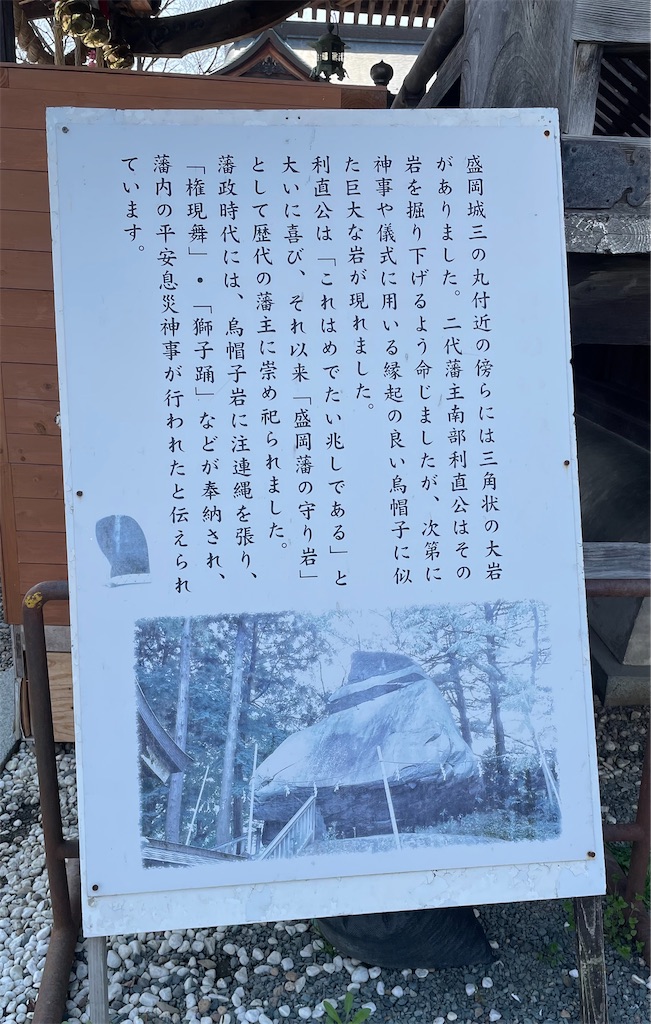 盛岡城三の丸付近の傍らには三角状の大岩
がありました。二代藩主南部利直公はその
岩を掘り下げるよう命じましたが、次第に
神事や儀式に用いる縁起の良い烏帽子に似
た巨大な岩が現れました。
利直公は「これはめでたい兆しである」と
大いに喜び、それ以来「盛岡藩の守り岩」
として歴代の藩主に崇め祀られました。
藩政時代には、烏帽子岩に注連縄を張り、
「権現舞」・「獅子踊」などが奉納され、
藩内の平安息災神事が行われたと伝えられ
ています。